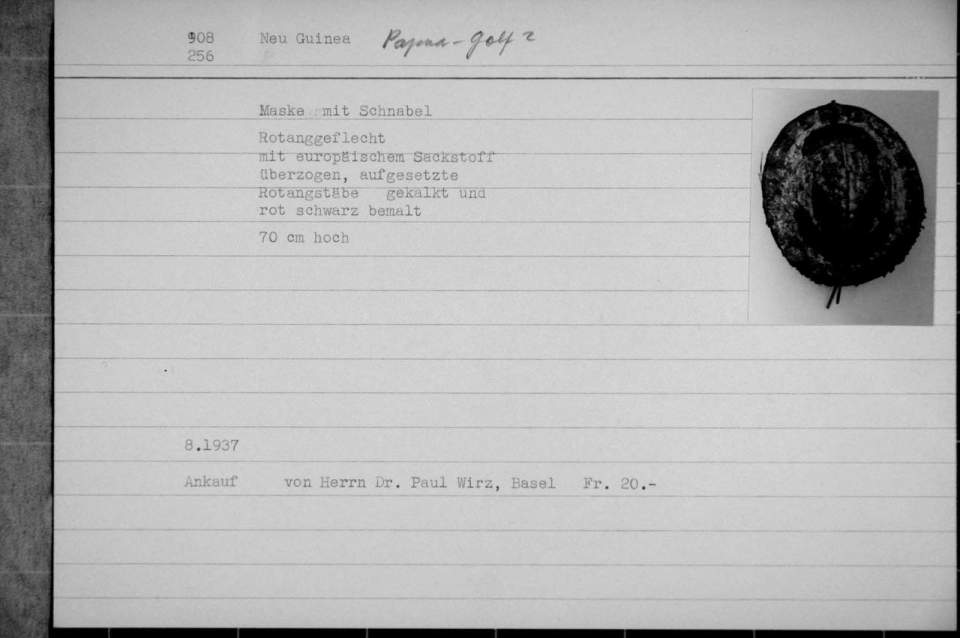 908 Neu Guinea Papua-Golf ?
256
Maske mit Schnabel
Rotanggeflecht
mit europäischem Sackstoff
überzogen, aufgesetzte
Rotangstäbe gekalkt und
rot schwarz bemalt
70 cm hoch
8.1937
Ankauf von Herrn Dr. Paul Wirz, Basel Fr. 20.-